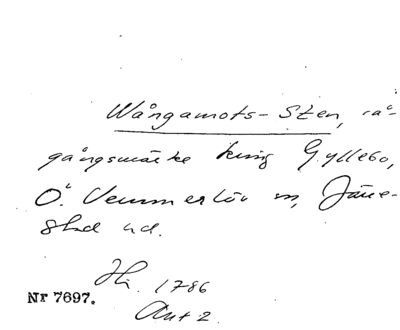 Wångamots-Sten, rå-
gångsmärke kring Gyllebo,
Ö. Vemmerlöv sn, Järre-
stad hd.
Hi. 1786
Akt 2
Nr 7697.